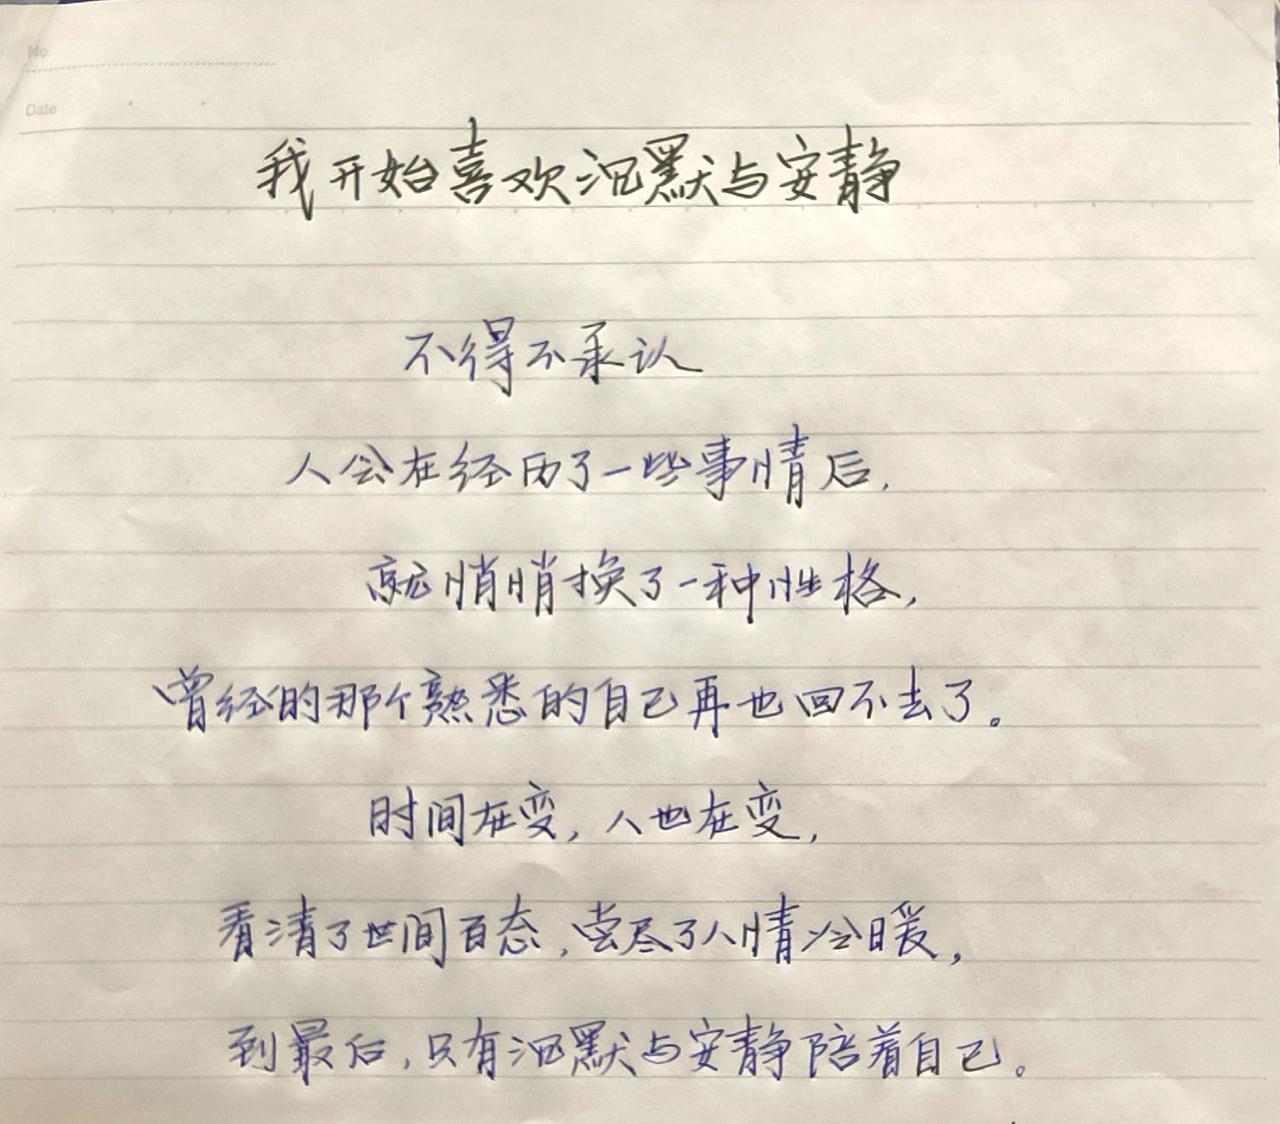 No.
Date
我开始喜欢沉默与安静
不得不承认
人会在经历了一些事情后,
就悄悄换了一种性格,
曾经的那个熟悉的自己再也回不去了。
时间在变,人也在变,
看清了世间百态,尝尽了人情冷暖,
到最后,只有沉默与安静陪着自己。